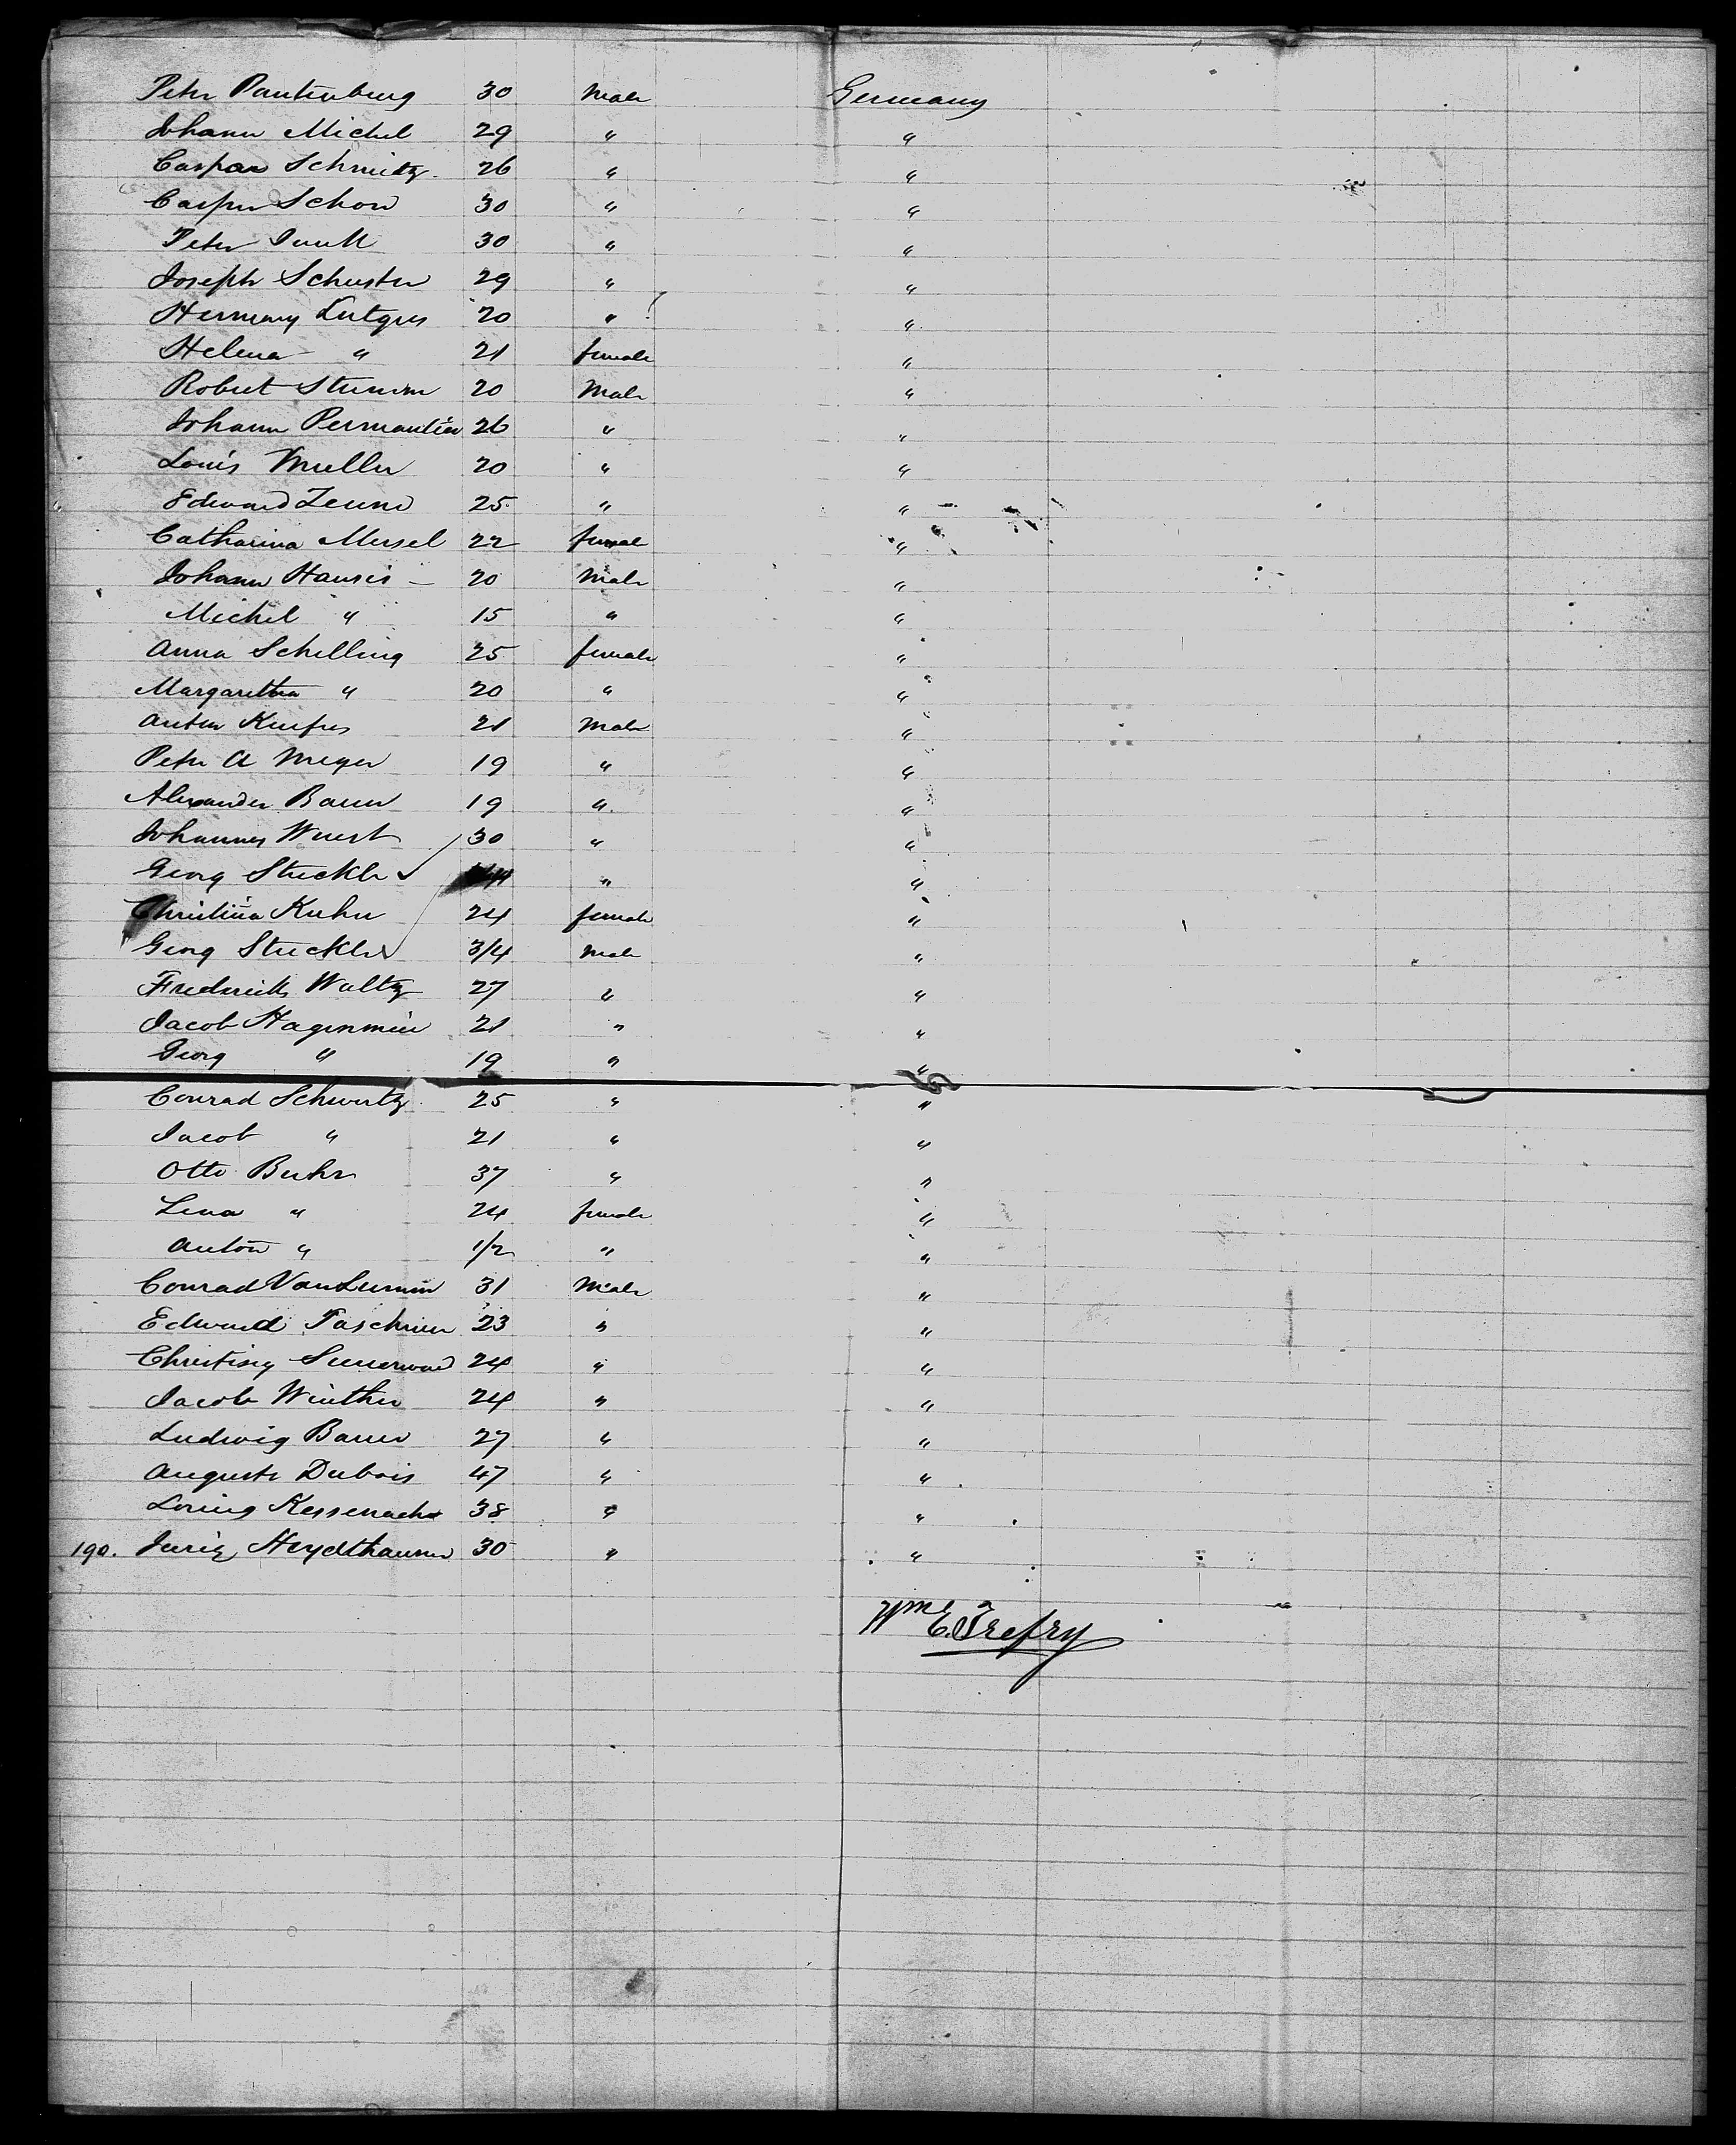 Peter Pantenburg 30 Male Germany
Johann Michel 29 " "
Caspar Schmitz 26 " "
Casper Schon 30 " "
Peter 30 " "
Joseph Schuster 29 " "
Hermany Lutgers 20 " "
Helena " 21 female "
Robert Stumm 20 Male "
Johann Permantier 26 " "
Louis Muller 20 " "
Edward 25 " "
Catharina Mersel 22 female "
Johann Hansis 20 Male "
Michel " 15 " "
Anna Schelling 25 female "
Margaretha " 20 " "
Anton 21 Male "
Peter A Meyer 19 " "
Alexander Bauer 19 " "
Johannes Wuest 30 " "
Georg Stuckler " "
Christina Kuhn 24 female "
Georg Stuckler 3/4 Male "
Fredericks Waltz 27 " "
Jacob Hagenmeir 21 " "
Georg " 19 " "
Conrad Schwartz 25 " "
Jacob " 21 " "
Otto Buhr 37 " "
Lena " 24 female "
Anton " 1/2 " "
Conrad Van 31 Male "
Edward Taschner 23 " "
24 " "
Jacob Winther 24 " "
Ludwig Bauer 27 " "
Auguste Dubois 47 " "
38 " "
190. Heydthausen 30 " "
Wm C. Trefry